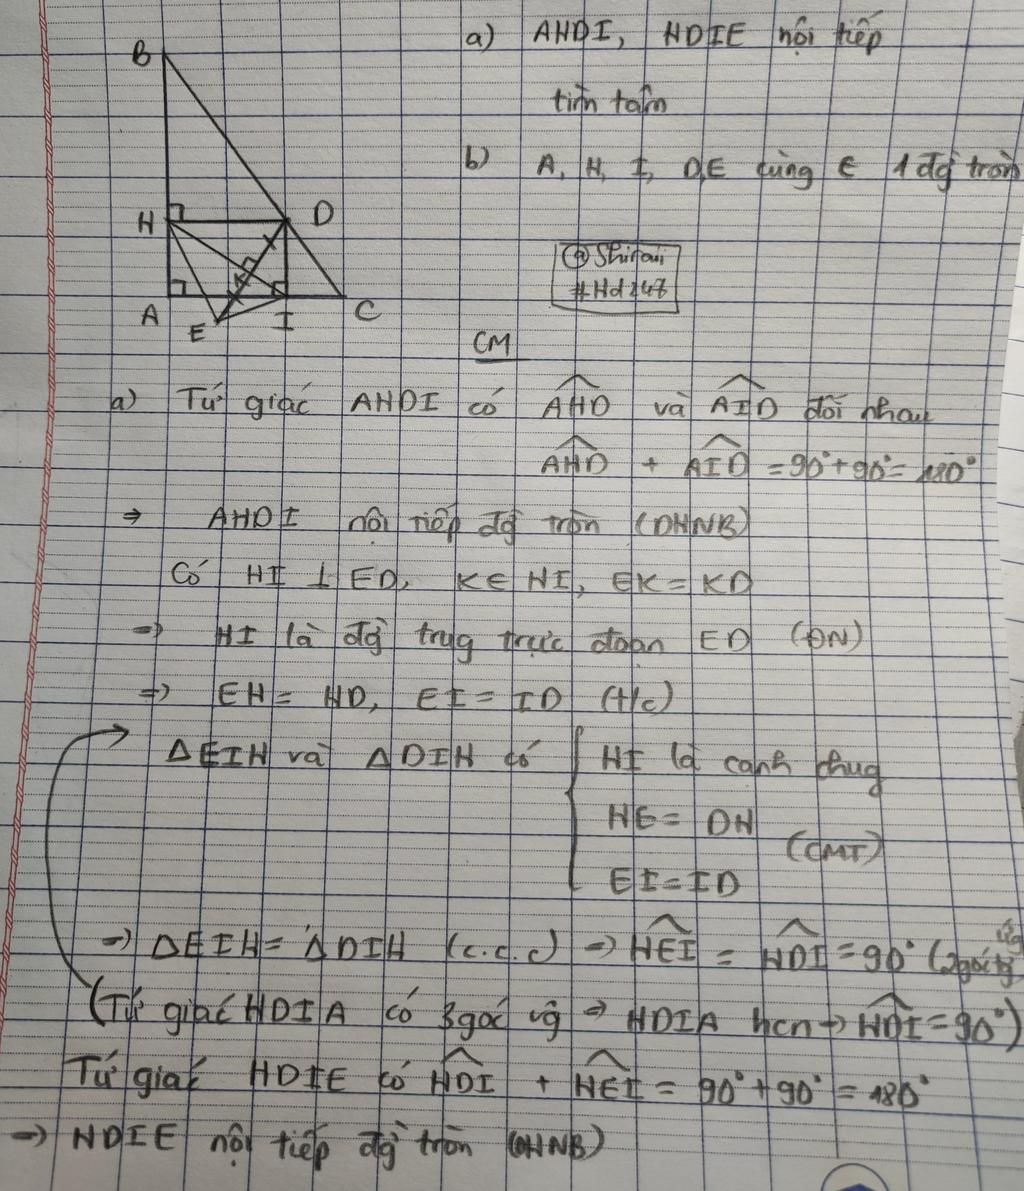 a) AHDI, HDIE nội tiếp
tìm tâm
b) A, H, I, D, E cùng ∈ 1 đg tròn
B
H
D
K
A
E
I
C
@Shirai
CM
a) Tứ giác AHDI có AHD và AID đối nhau
AHD + AID = 90° + 90° = 180°
⇒ AHDI nội tiếp đg tròn (DHNB)
Có HI ⊥ ED, K ∈ HI, EK = KD
⇒ HI là đg trug trực đoạn ED (ĐN)
⇒ EH = HD, EI = ID (t/c)
ΔEIH và ΔDIH có { HI là cạnh chug
HE = DH
(CMT)
EI = ID
⇒ ΔEIH = ΔDIH (c.c.c) ⇒ HEI = HDI = 90° (2 góc tg ứg
(Tứ giác HDIA có 3 góc vg ⇒ HDIA hcn → HDI = 90°)
Tứ giác HDIE có HDI + HEI = 90° + 90° = 180°
⇒ HDIE nội tiếp đg tròn (DHNB)